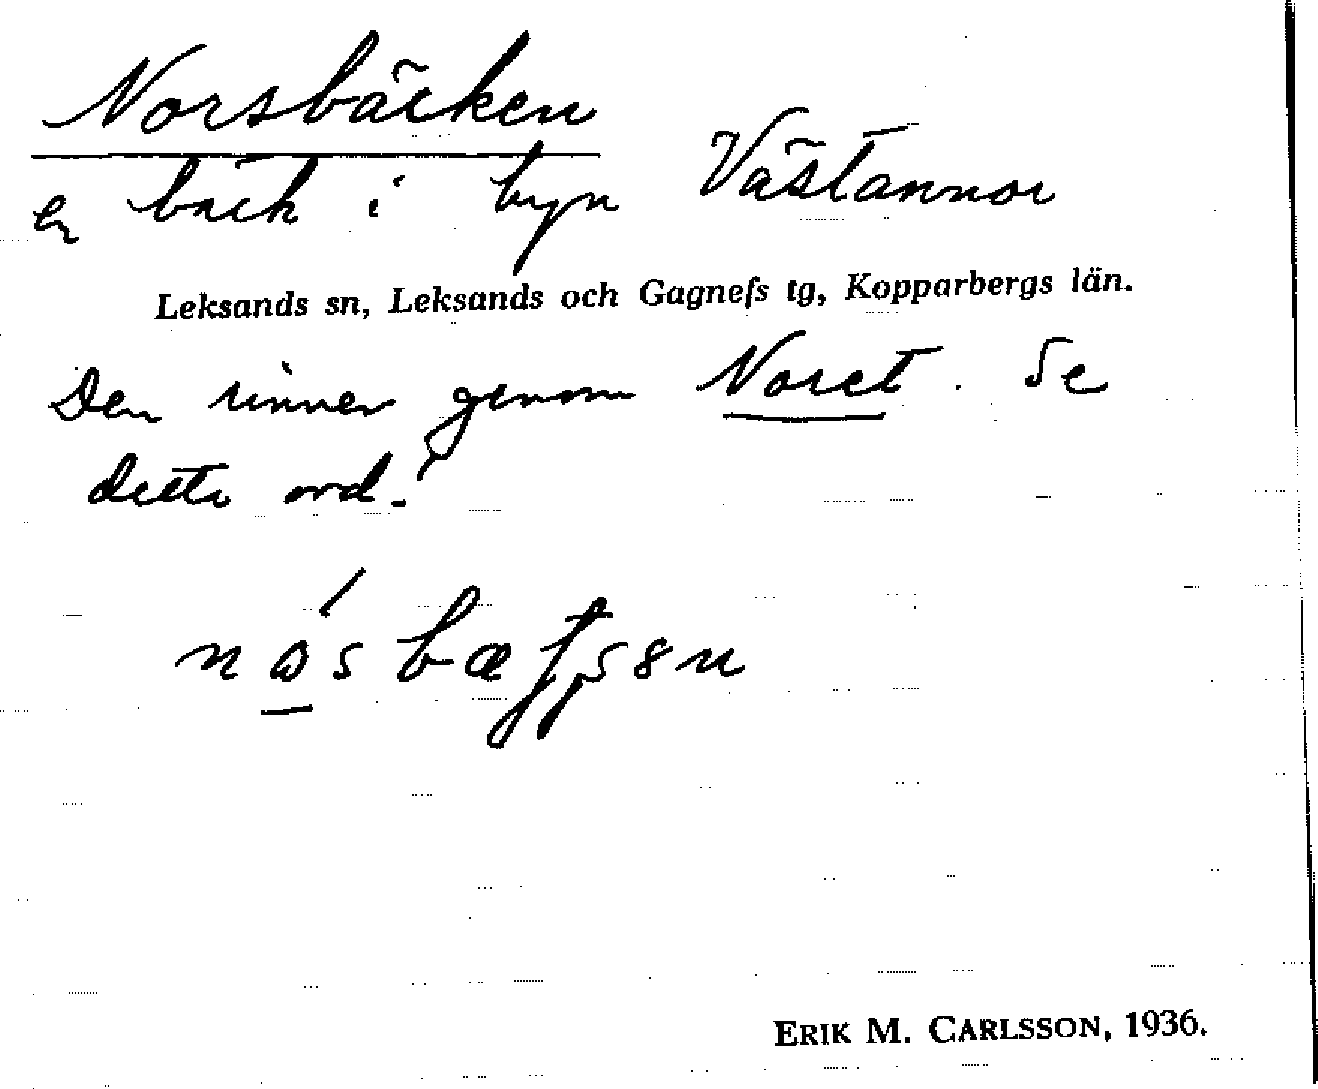 Norsbäcken
en bäck i byn Västannor
Leksands sn, Leksands och Gagnefs tg, Kopparbergs län.
Den rinner genom Noret. Se
detta ord.
ERIK M. CARLSSON, 1936.